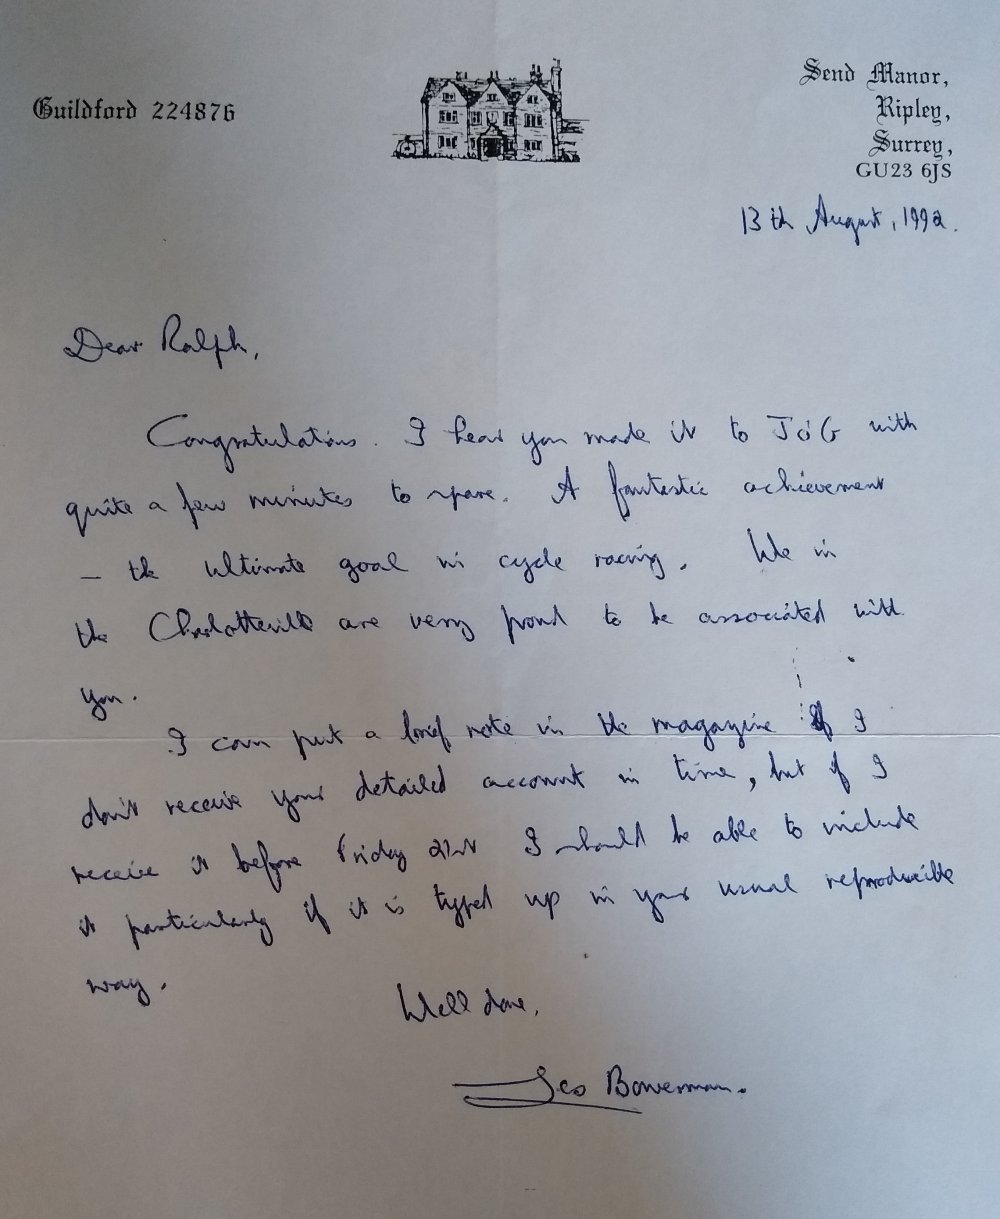 Guildford 224876
Send Manor,
Ripley,
Surrey,
GU23 6JS
13th August, 1992.
Dear Ralph,
Congratulations. I hear you made it to JOG with
quite a few minutes to spare. A fantastic achievement
– the ultimate goal in cycle racing. We in
the Charlotteville are very proud to be associated with
you.
I can put a brief note in the magazine if I
don't receive your detailed account in time, but if I
receive it before Friday 21st I should be able to include
it particularly if it is typed up in your usual reproducible
way.
Well done,
Geo Bowerman.